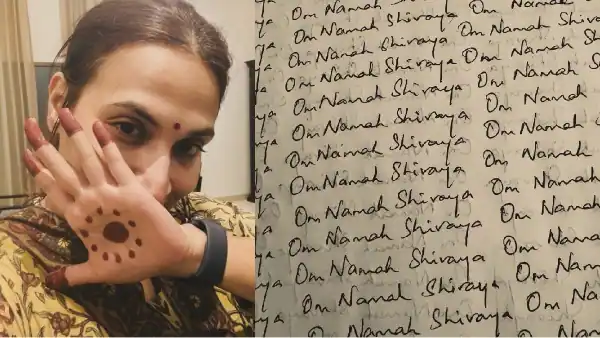 ya Om Namah Shivaya Om Namah
ya Om Namah Shivaya Om Namah Shiva
ya Om Namah Shivaya Om Namah Sh
ya Om Namah Shivaya Om Namah S
ya Om Namah Shivaya Om Namah
ya Om Namah Shivaya Om Namah
ya Om Namah Shivaya Om Namah
ya Om Namah Shivaya Om Namah
ya Om Namah Shivaya Om Namah
ya Om Namah Shivaya Om Nama
ya Om Namah Shivaya Om Nam
ya Om Namah Shivaya Om Na
Om Namah Shivaya Om N